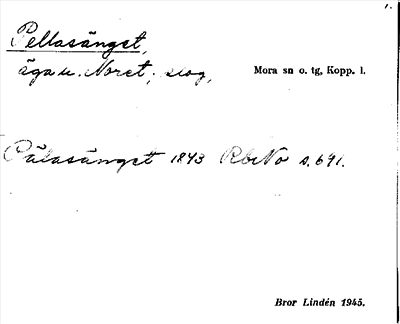 1.
Pellasänget,
äga u. Noret; slog,
Mora sn o. tg, Kopp. l.
Pälasänget 1843 RbNo s. 641.
Bror Lindén 1945.